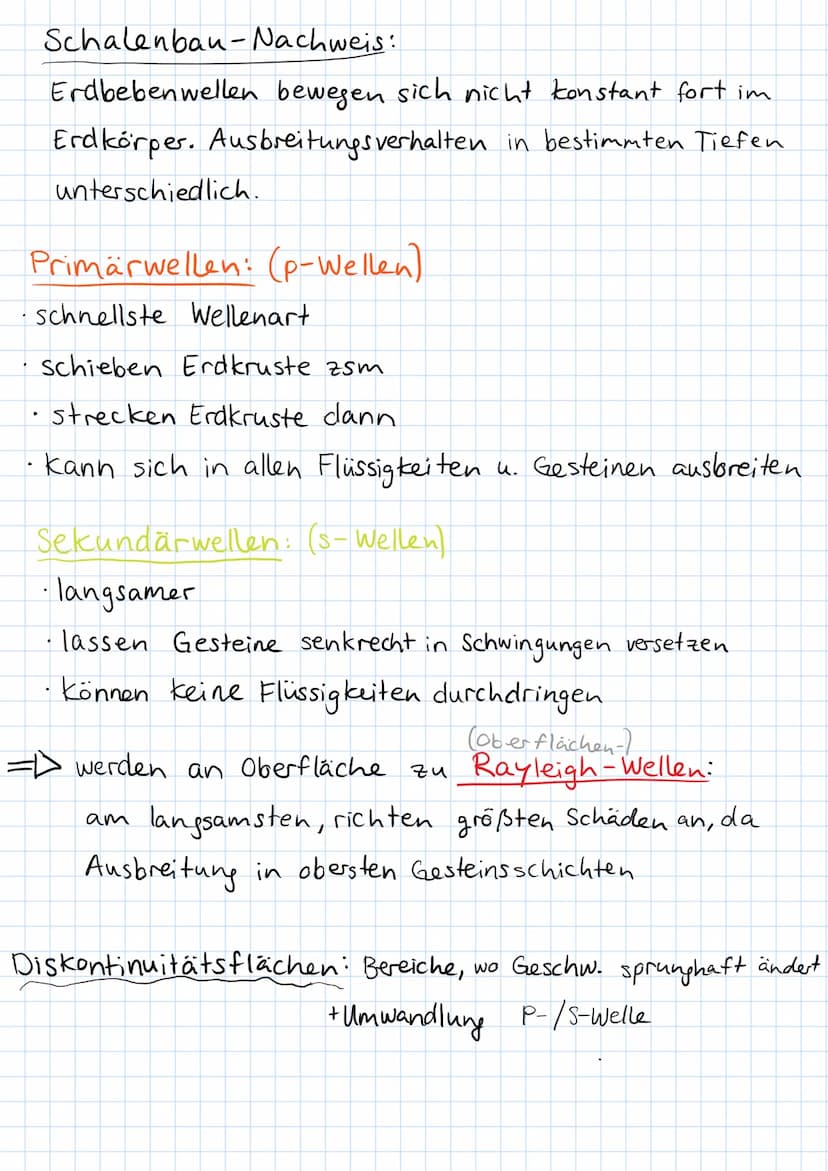 Schalenbau-Nachweis:
Erdbebenwellen bewegen sich nicht konstant fort im
Erdkörper. Ausbreitungsverhalten in bestimmten Tiefen
unterschiedlich.
Primärwellen: (p-Wellen)
· schnellste Wellenart
· schieben Erdkruste zsm
· strecken Erdkruste dann
· kann sich in allen Flüssigkeiten u. Gesteinen ausbreiten
Sekundärwellen: (s-Wellen)
· langsamer
· lassen Gesteine senkrecht in Schwingungen versetzen
· können keine Flüssigkeiten durchdringen
(Oberflächen-)
=> werden an Oberfläche zu Rayleigh-Wellen:
am langsamsten, richten größten Schäden an, da
Ausbreitung in obersten Gesteinsschichten
Diskontinuitätsflächen: Bereiche, wo Geschw. sprunghaft ändert
+Umwandlung P-/S-Welle